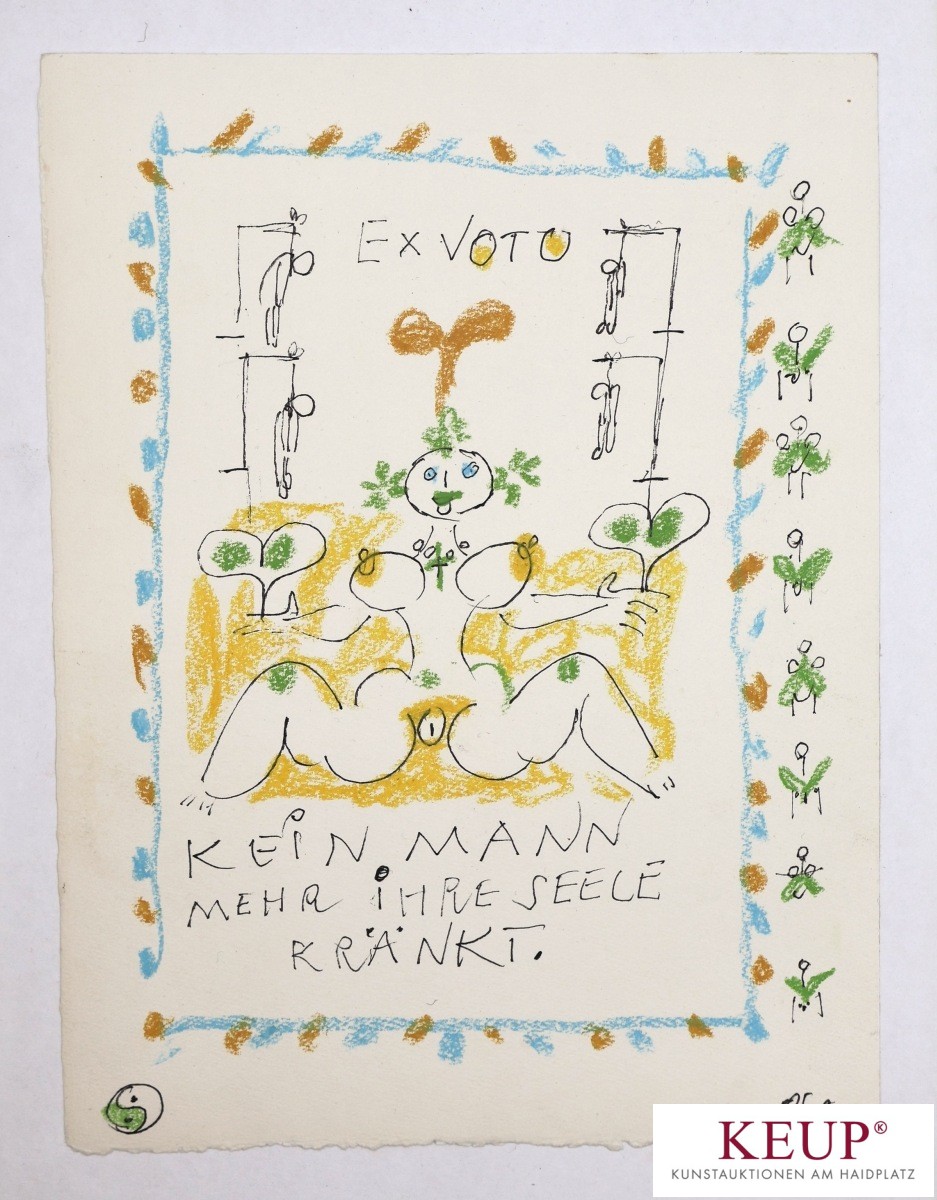 EX VOTO
KEIN MANN
MEHR IHRE SEELE
KRÄNKT.
KEUP®
KUNSTAUKTIONEN AM HAIDPLATZ